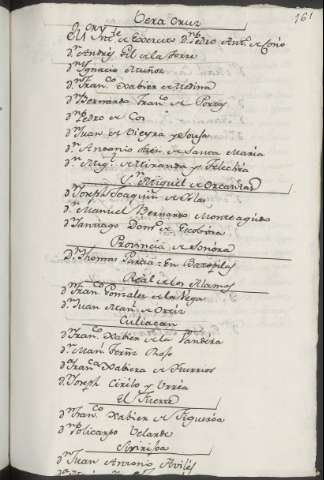 161
Vera Cruz
El Int.te de Exercito D.n Pedro Ant.o de Cosio
D.n Andrés Gil de la Torre
D.n Ignacio Muñoz
D.n Fran.co Xabier de Medina
D.n Bernardo Fran.co de Porras
D.n Pedro de Cos
D.n Juan de Vieyra y Sousa
D.n Antonio de Santa Maria
D.n Mig.l de Miranda y Flechra
S.n Miguel de Orcasitas
D.n Joseph Joaquin de
D.n Manuel Bernardo Monteagudo
D.n Santiago Dom.o de Escobosa
Provincia de Sonora
D.n Thomas Garcia: En Baropilas
Real de los Alamos
D.n Fran.co Gonzalez de la Vega
D.n Juan Man.l de Ortiz
Culiacan
D.n Fran.co Xabier de la Bandera
D.n Man.l Ferñz Rojo
D.a Fran.ca Xabiera de Yturrios
D.n Joseph Cirilo y Urréa
El Fuerte
D.n Fran.co Xabier de Figueróa
D.n Policarpo Velarde
Sivirijoa
D.n Juan Antonio Avilés